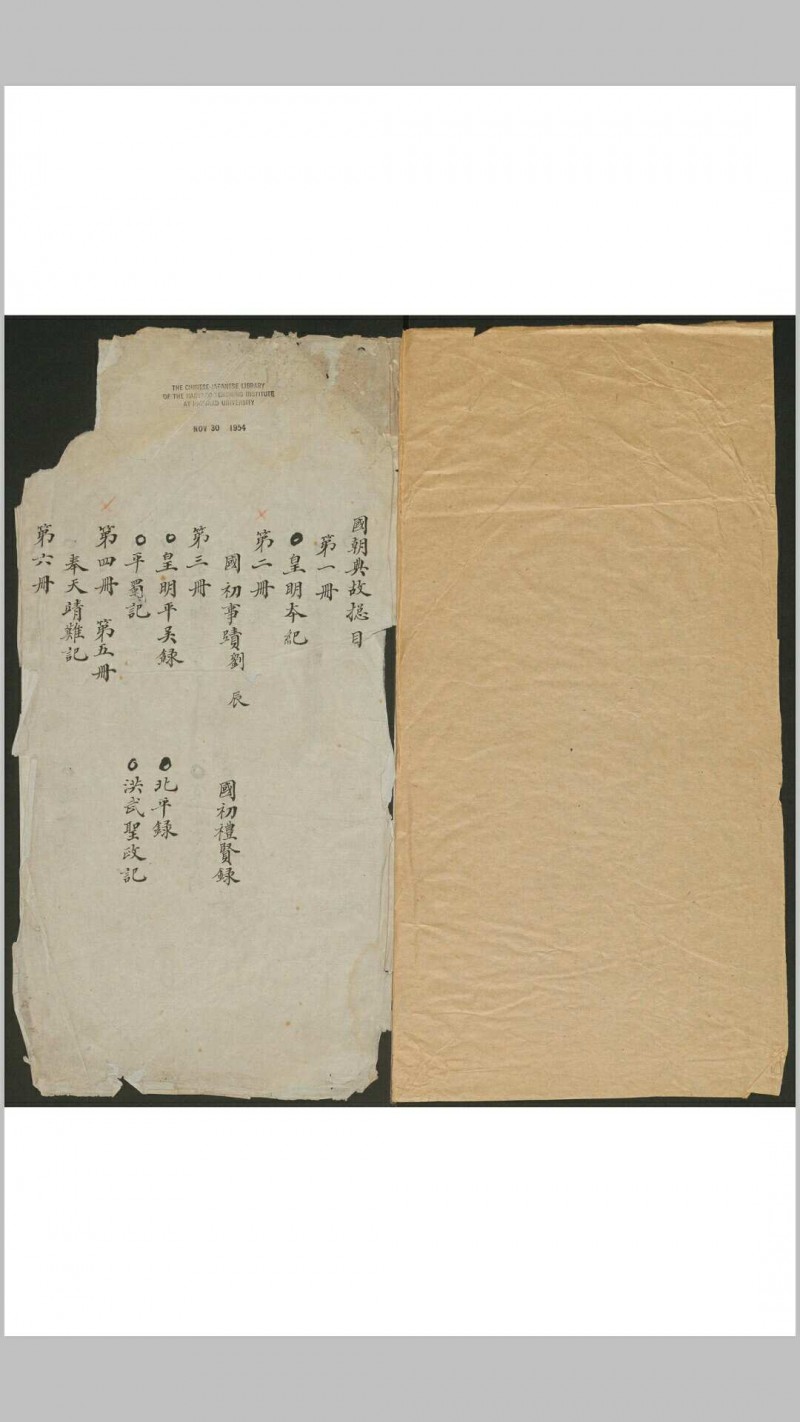 THE CHINESE-JAPANESE LIBRARY
OF THE HARVARD-YENCHING INSTITUTE
AT HARVARD UNIVERSITY
NOV 30 1954
國朝典故揔目
第一册
皇明本紀
第二册
國初事蹟劉辰
國初禮賢錄
第三册
皇明平吳錄
北平錄
平蜀記
洪武聖政記
第四册 第五册
奉天靖難記
第六册